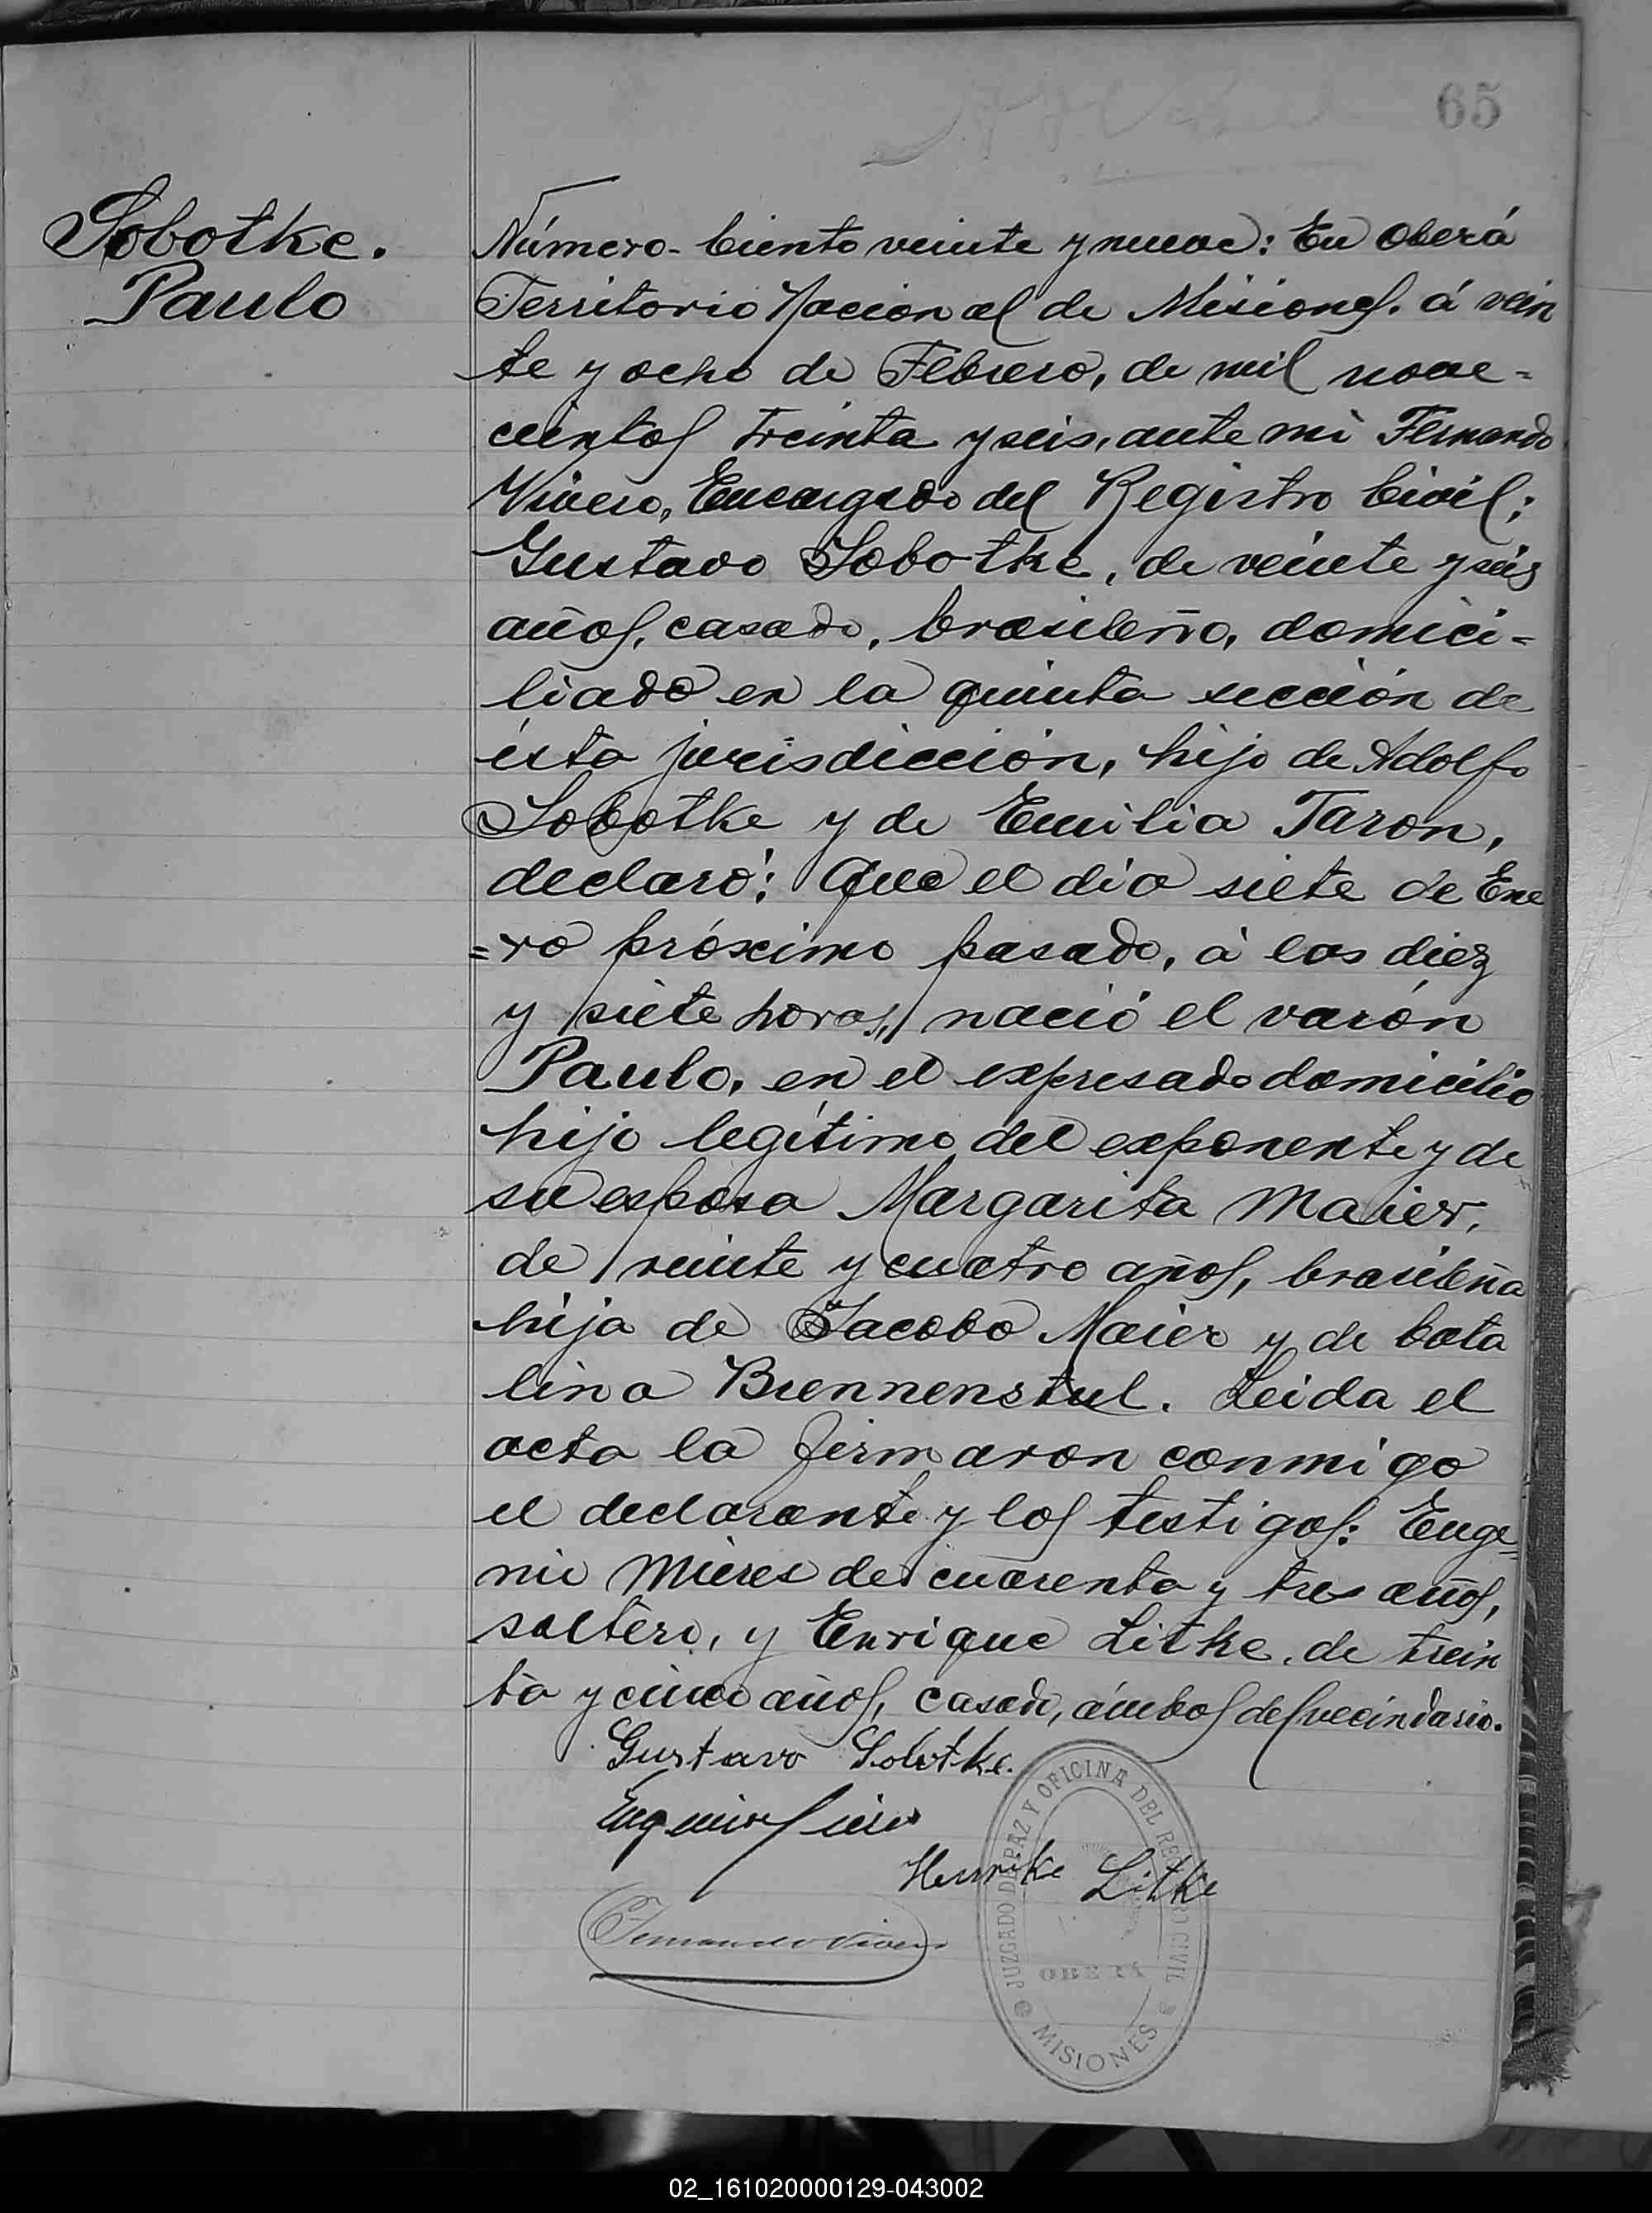 65
Sobotke.
Paulo
Número Ciento veinte y nueve: En Oberá
Territorio Nacional de Misiones. á vein
te y ocho de Febrero, de mil nove=
cientos treinta y seis, ante mi Fernando
Vivero, Encargado del Registro Civil;
Gustavo Sobotke, de veinte y seis
años, casado, brasileño, domici=
liado en la quinta sección de
ésta jurisdicción, hijo de Adolfo
Sobotke y de Emilia Taron,
declaró: Que el día siete de Ene
=ro próximo pasado, á las diez
y siete horas, nació el varón
Paulo, en el expresado domicilio
hijo legítimo del exponente y de
su esposa Margarita Maier,
de veinte y cuatro años, brasileña
hija de Jacobo Maier y de Cata
lina Brennenstul. Leida el
acta la firmaron conmigo
el declarante y los testigos: Euge=
nio Mieres de cuarenta y tres años,
soltero, y Enrique Litke, de trein
ta y cinco años, casado, ámbos del vecindario.
Gustavo Sobotke.
Eugenio Mieres
Henrike Litke
Fernando Vivero
JUZGADO DE PAZ Y OFICINA DEL REGISTRO CIVIL
OBERÁ
MISIONES
02_161020000129-043002